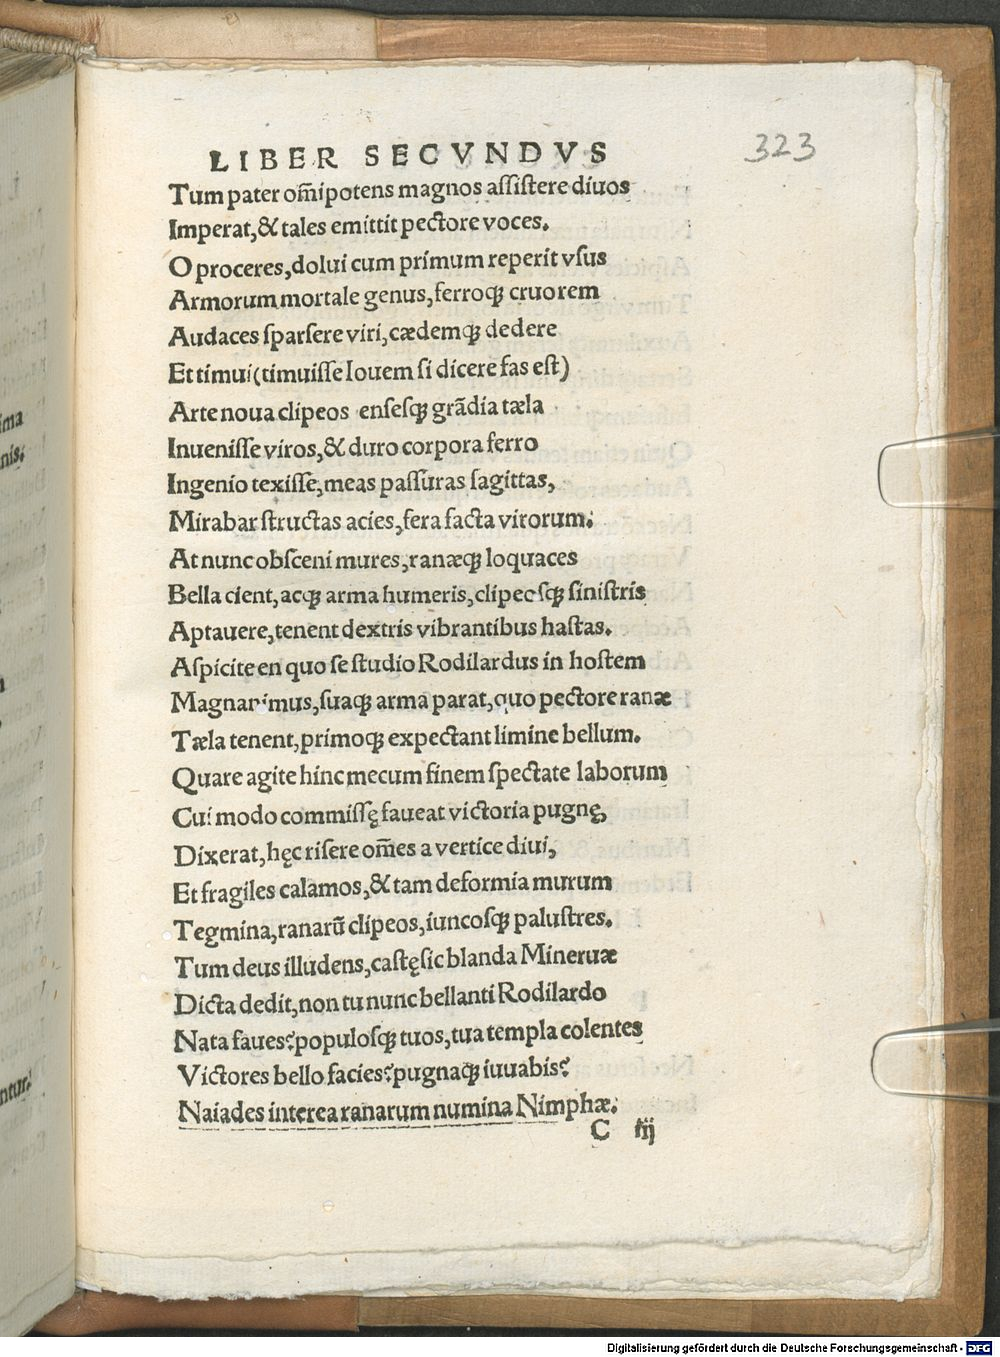 323
LIBER SECVNDVS
Tum pater om̄ipotens magnos aſſiſtere diuos
Imperat,& tales emittit pectore voces.
O proceres,dolui cum primum reperit vſus
Armorum mortale genus,ferroqꝫ cruorem
Audaces ſparſere viri,cædemqꝫ dedere
Et timui(timuiſſe Iouem ſi dicere fas eſt)
Arte noua clipeos enſeſqꝫ grādia tæla
Inueniſſe viros,& duro corpora ferro
Ingenio texiſſe,meas paſſuras ſagittas,
Mirabar ſtructas acies,fera facta virorum:
At nunc obſceni mures,ranæqꝫ loquaces
Bella cient,acqꝫ arma humeris,clipeoſqꝫ ſiniſtris
Aptauere,tenent dextris vibrantibus haſtas.
Aſpicite en quo ſe ſtudio Rodilardus in hoſtem
Magnanimus,ſuaqꝫ arma parat,quo pectore ranæ
Tæla tenent,primoqꝫ expectant limine bellum.
Quare agite hinc mecum finem ſpectate laborum
Cui modo commiſſę faueat victoria pugnę,
Dixerat,hęc riſere om̄es a vertice diui,
Et fragiles calamos,& tam deformia murum
Tegmina,ranarū clipeos,iuncoſqꝫ paluſtres.
Tum deus illudens,caſtę ſic blanda Mineruæ
Dicta dedit,non tu nunc bellanti Rodilardo
Nata faues?populoſqꝫ tuos,tua templa colentes
Victores bello facies?pugnaqꝫ iuuabis?
Naiades interea ranarum numina Nimphæ:
C iij
ima
nis:
ntur:
Digitalisierung gefördert durch die Deutsche Forschungsgemeinschaft - DFG